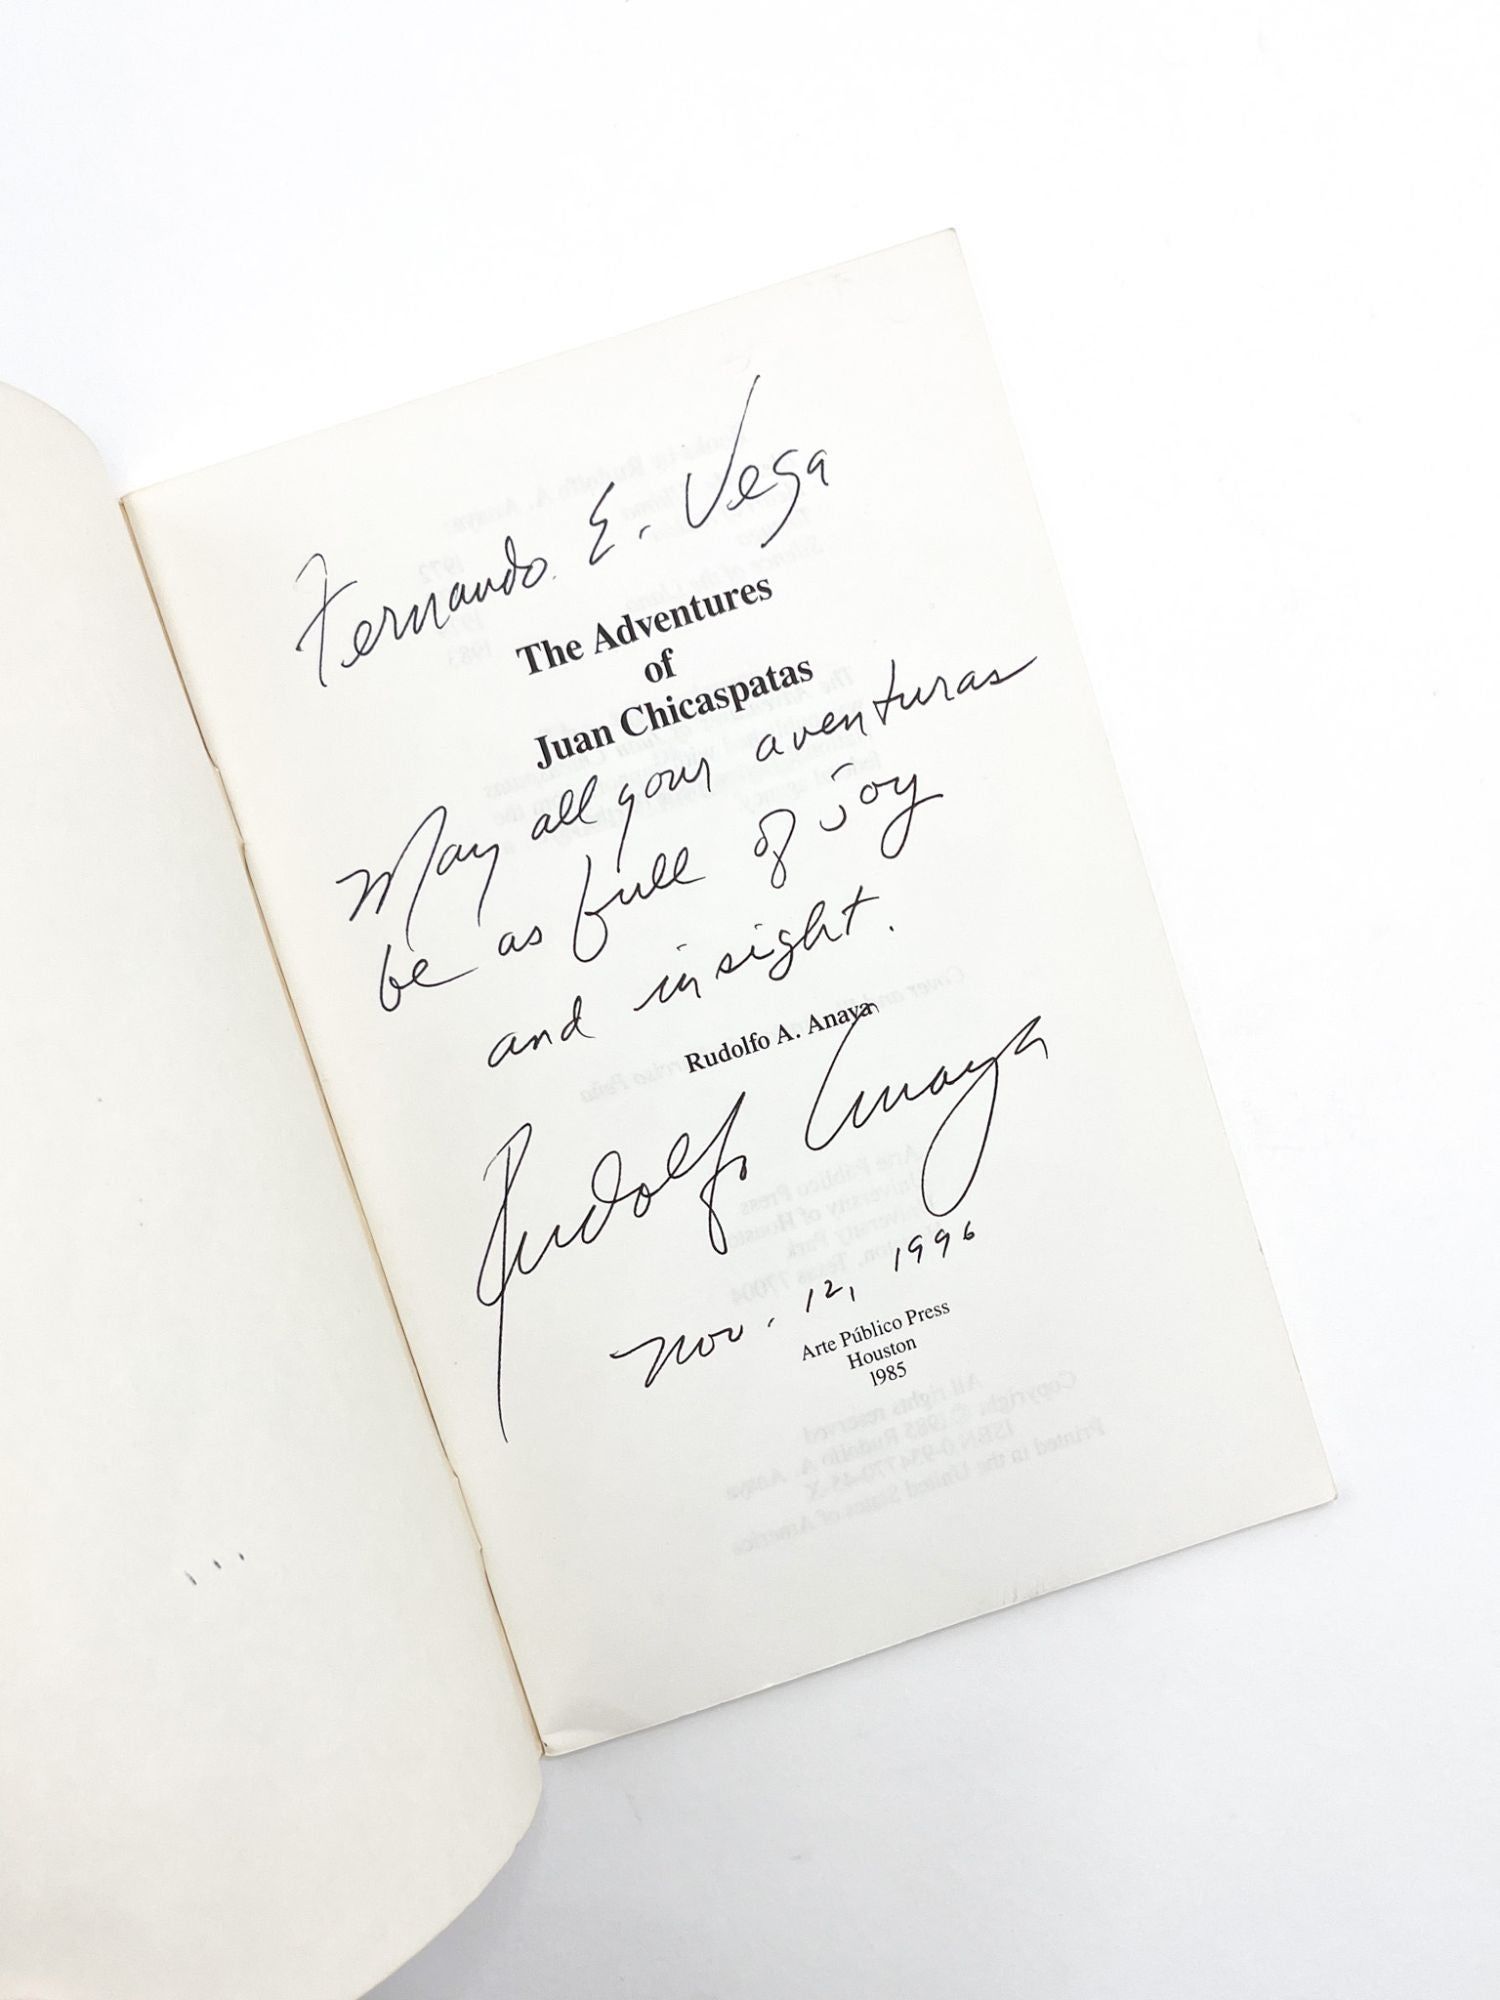 Fernando E. Vega
The Adventures
of
Juan Chicaspatas
May all your aventuras
be as full of joy
and insight.
Rudolfo A. Anaya
Rudolfo Anaya
Nov. 12, 1996
Arte Público Press
Houston
1985